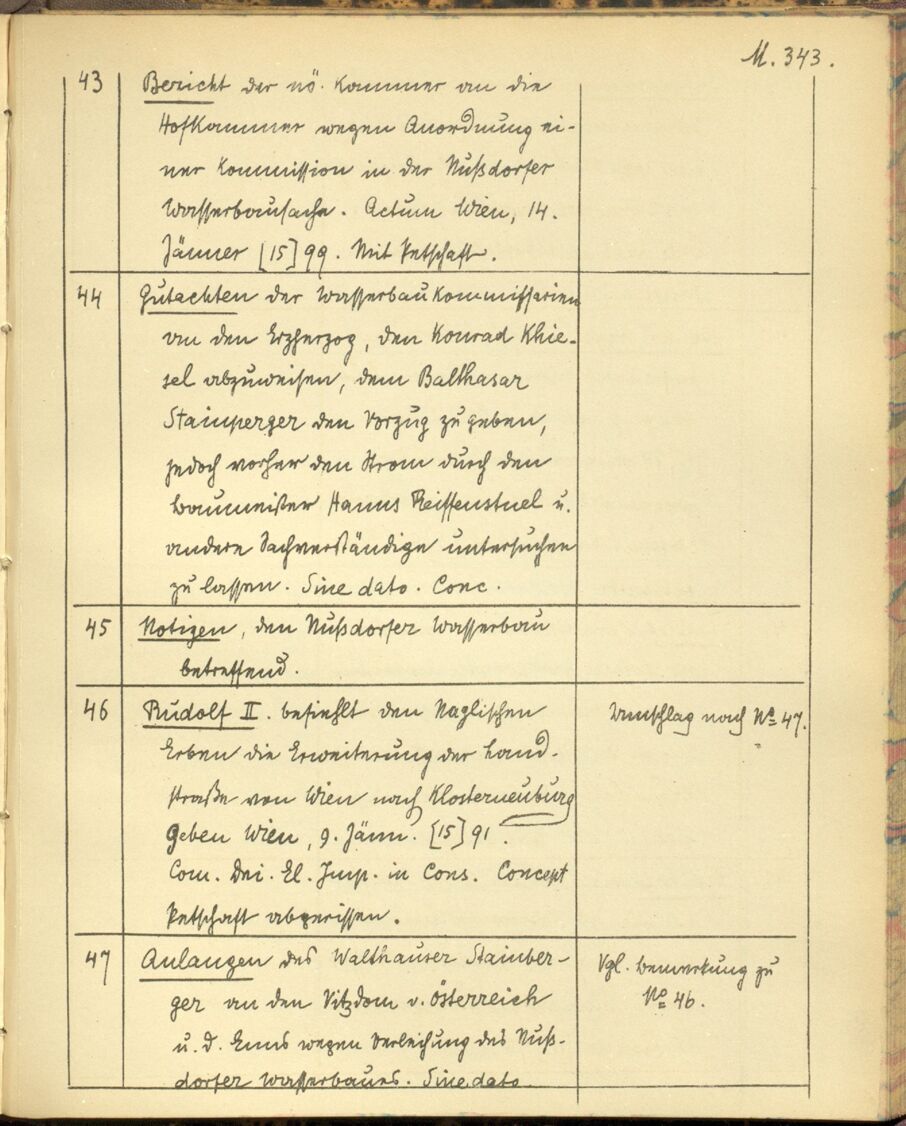 M. 343.
43 Bericht der nö. Kammer an die
Hofkammer wegen Anordnung ei-
ner Kommission in der Nußdorfer
Wasserbausache. Actum Wien, 14.
Jänner [15]99. Mit Petschaft.
44 Gutachten der Wasserbaukommissarien
an den Erzherzog, den Konrad Khie-
sel abzuweisen, dem Balthasar
Stainperger den Vorzug zu geben,
jedoch vorher den Strom durch den
Baumeister Hanns Reiffenstuel u.
andere Sachverständige untersuchen
zu lassen. Sine dato. Conc.
45 Notizen, den Nußdorfer Wasserbau
betreffend.
46 Rudolf II. befiehlt den Naglischen
Erben die Erweiterung der Land-
straße von Wien nach Klosterneuburg
Geben Wien, 9. Jänn. [15]91.
Com. Dni. El. Imp. in Cons. Concept
Petschaft abgerissen.
Umschlag nach No 47.
47 Anlangen des Walthauser Stainber-
ger an den Vitzdom v. Österreich
u. d. Enns wegen Verleihung des Nuß-
dorfer Wasserbaues. Sine dato
Vgl. Bemerkung zu
No 46.